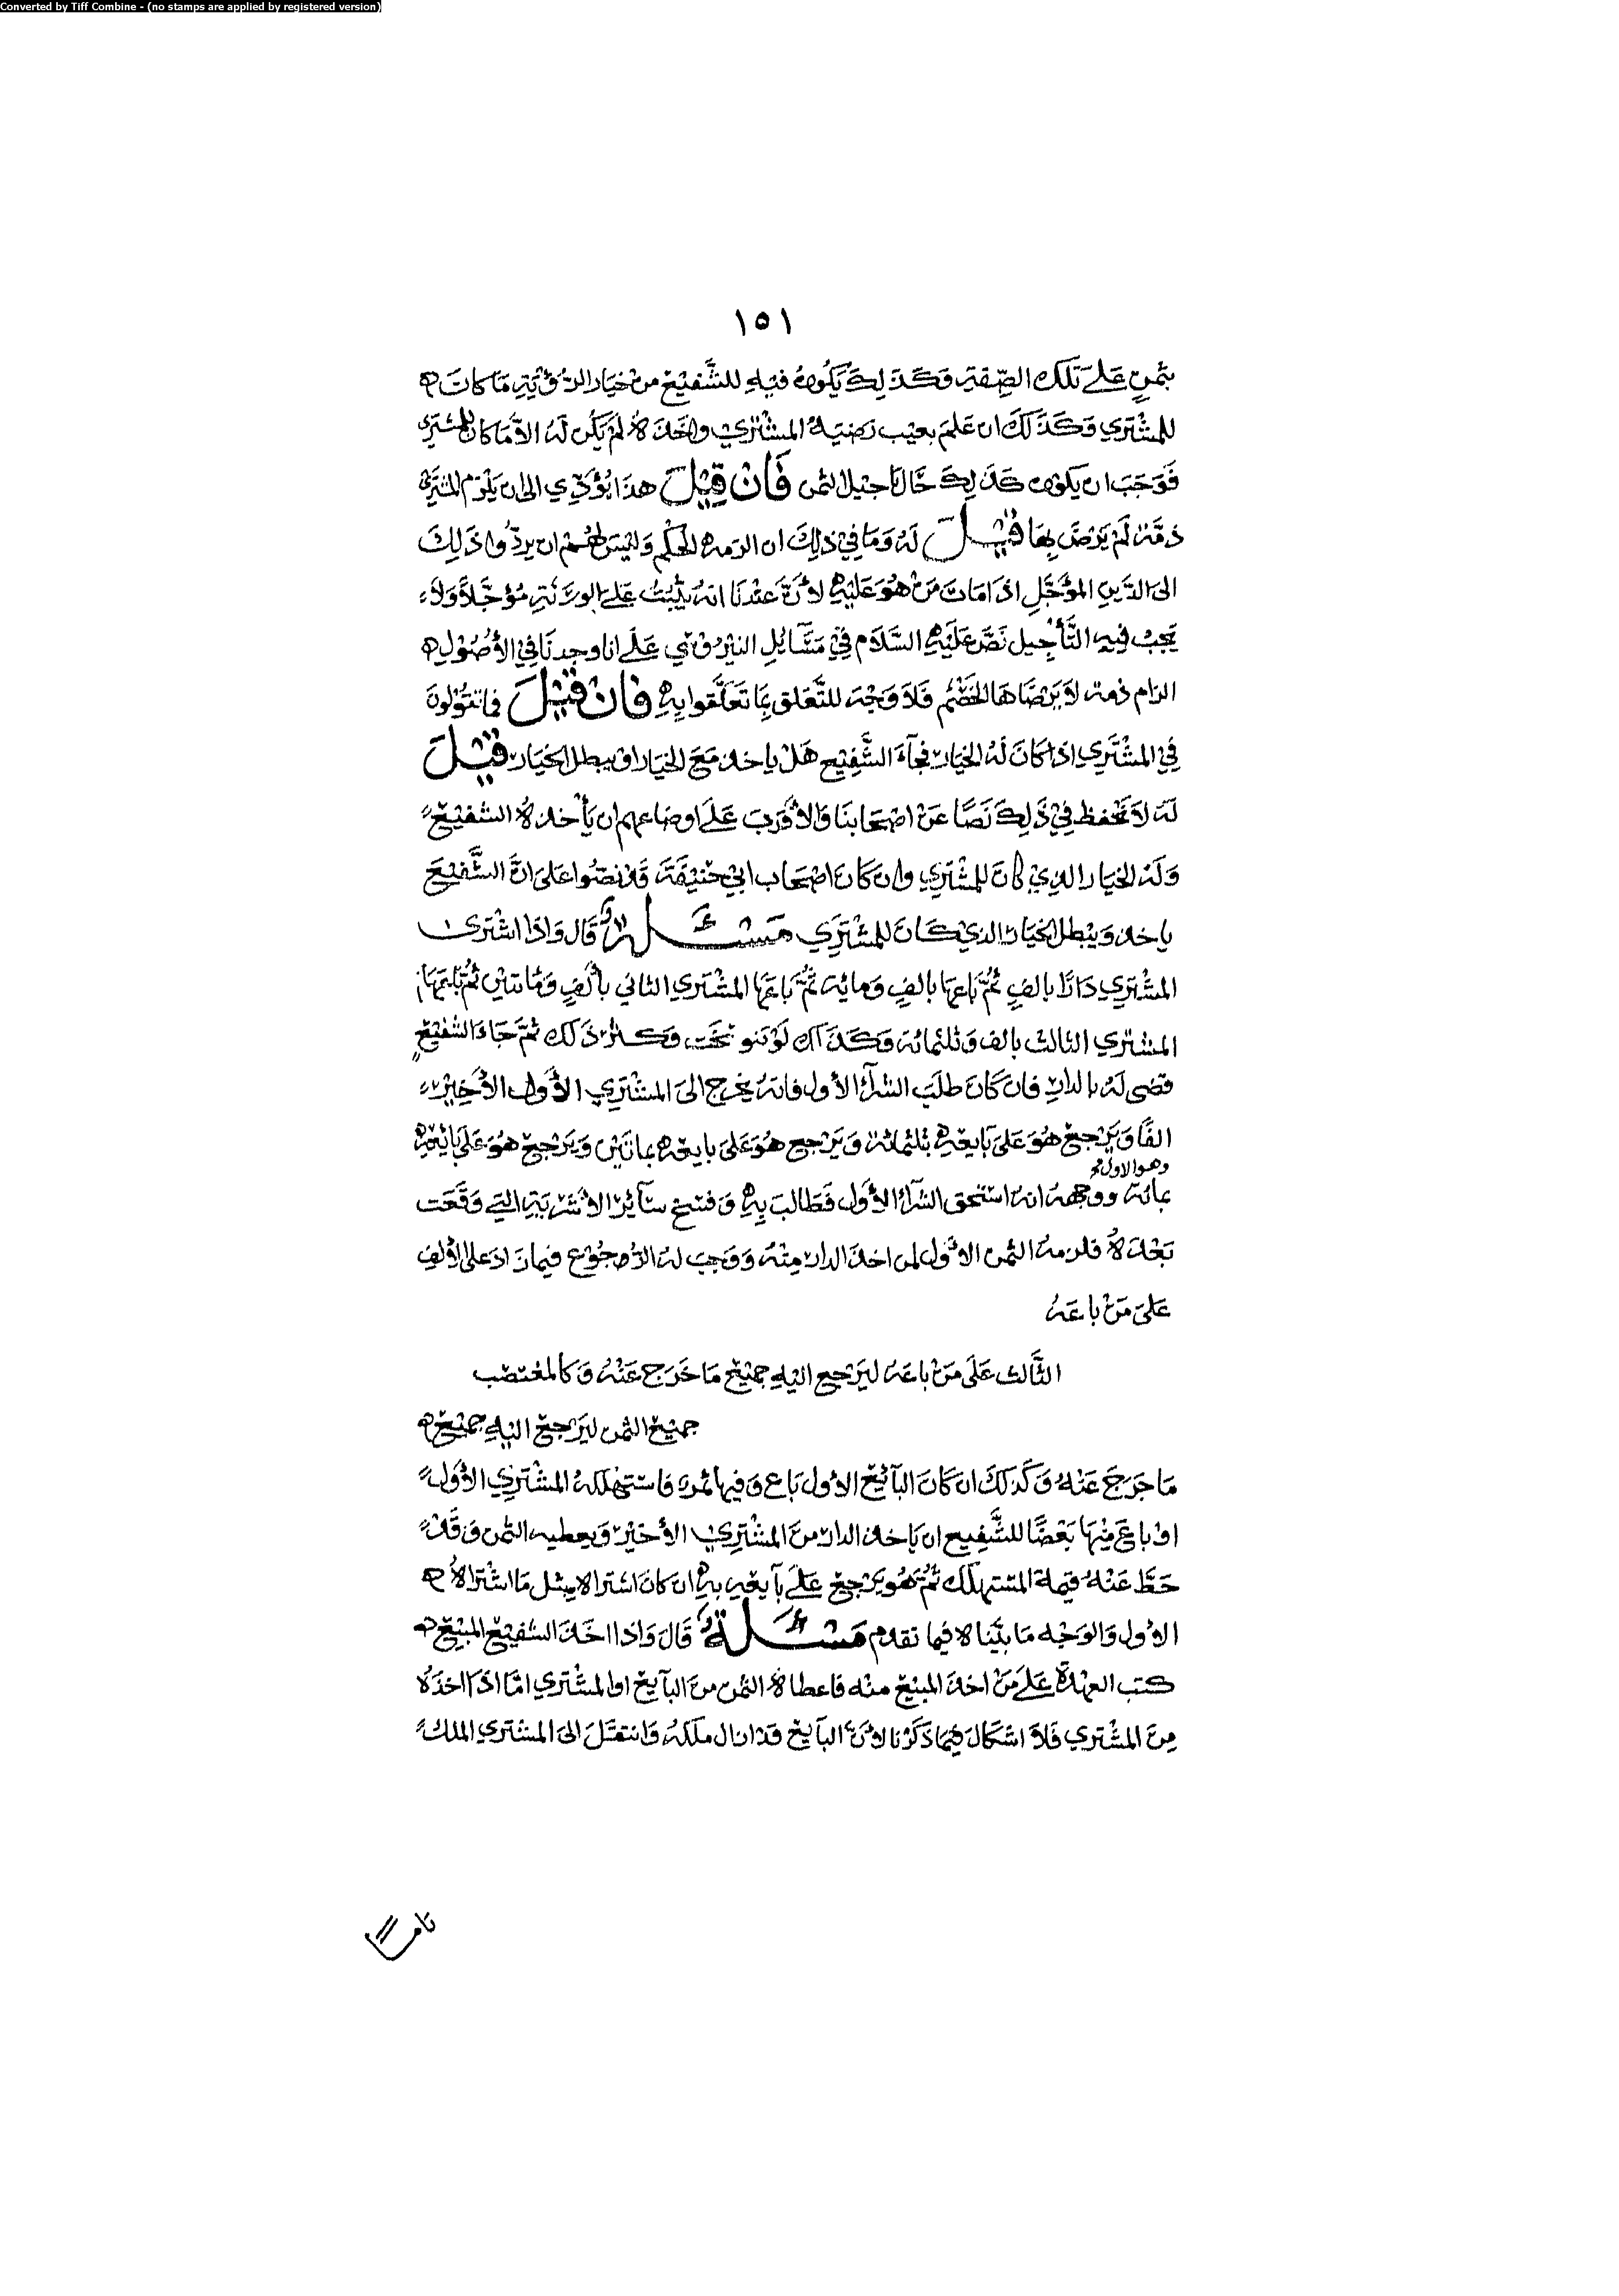 Converted by Tiff Combine - (no stamps are applied by registered version)
١٥١
بثمن على تلك الصفقة وكذلك يكون فيه للشفيع من خيار الرؤية ما كان
للمشتري وكذلك ان علم بعيب رضيه المشتري واخذه لم يكن له الا ما كان للمشتري
فوجب ان يكون كذلك حال تاجيل الثمن فان قيل هذا يؤدي الى ان يلزم المشتري
ذمة لم يرض بها قيل له وما في ذلك ان الزمه الحكم وليس لهم ان يردوا ذلك
الى الدين المؤجل اذا مات من هو عليه لأن عندنا انه يثبت على الورثة مؤجلا ولا
يجب فيه التأجيل نص عليه السلام في مسائل النيروسي على انا وجدنا في الأصول
الزام ذمة لا يرضاها الخصم فلا وجه للتعلق بما تعلقوا به فان قيل فما تقولون
في المشتري اذا كان له الخيار فجآء الشفيع هل ياخذه مع الخيار او يبطل الخيار قيل
له لا نحفظ في ذلك نصا عن اصحابنا والأقرب على اوضاعهم ان يأخذه الشفيع
وله الخيار الذي كان للمشتري وان كان اصحاب ابي حنيفة قد نصوا على ان الشفيع
ياخذه ويبطل الخيار الذي كان للمشتري مسئلة قال واذا اشترى
المشتري دارا بالف ثم باعها بالف ومائه ثم باعها المشتري الثاني بألف ومائتين ثم باعها
المشتري الثالث بالف وثلثمائه وكذلك لو تنوسخت وكثر ذلك ثم جاء الشفيع
قضى له بالدار فان كان طلب الشرآء الأول فانه يخرج الى المشتري الأول الأخير
الفا ويرجع هو على بآيعه بثلثمائة ويرجع هو على بايعه بمائتين ويرجع هو على بائعه
وهو الاول
بمائة ووجهه انه استحق الشرآء الأول فطالب به وفسخ سآئر الأشرية التي وقعت
بعده فلزمه الثمن الاول لمن اخذ الدار منه ووجب له الرجوع فيما زاد على الألف
على من باعه
الثالث على من باعه ليرجع اليه جميع ما خرج عنه وكالمغتصب
جميع الثمن ليرجع اليه جميع
ما خرج عنه وكذلك ان كان البآئع الأول باع وفيها ثمره فاستهلكه المشتري الأول
او باع منها بعضا للشفيع ان ياخذ الدار من المشتري الأخير ويعطيه الثمن وقد
حط عنه قيمة المستهلك ثم هو يرجع على بآيعه به ان كان اشتراه بمثل ما اشتراه
الأول والوجه ما بيناه فيما تقدم مسئلة قال واذا اخذ الشفيع المبيع
كتب العهدة على من اخذ المبيع منه فاعطاه الثمن من البآيع او المشتري اما اذا اخذه
من المشتري فلا اشكال فيما ذكرنا لأن البآيع قد ازال ملكه وانتقل الى المشتري الملك